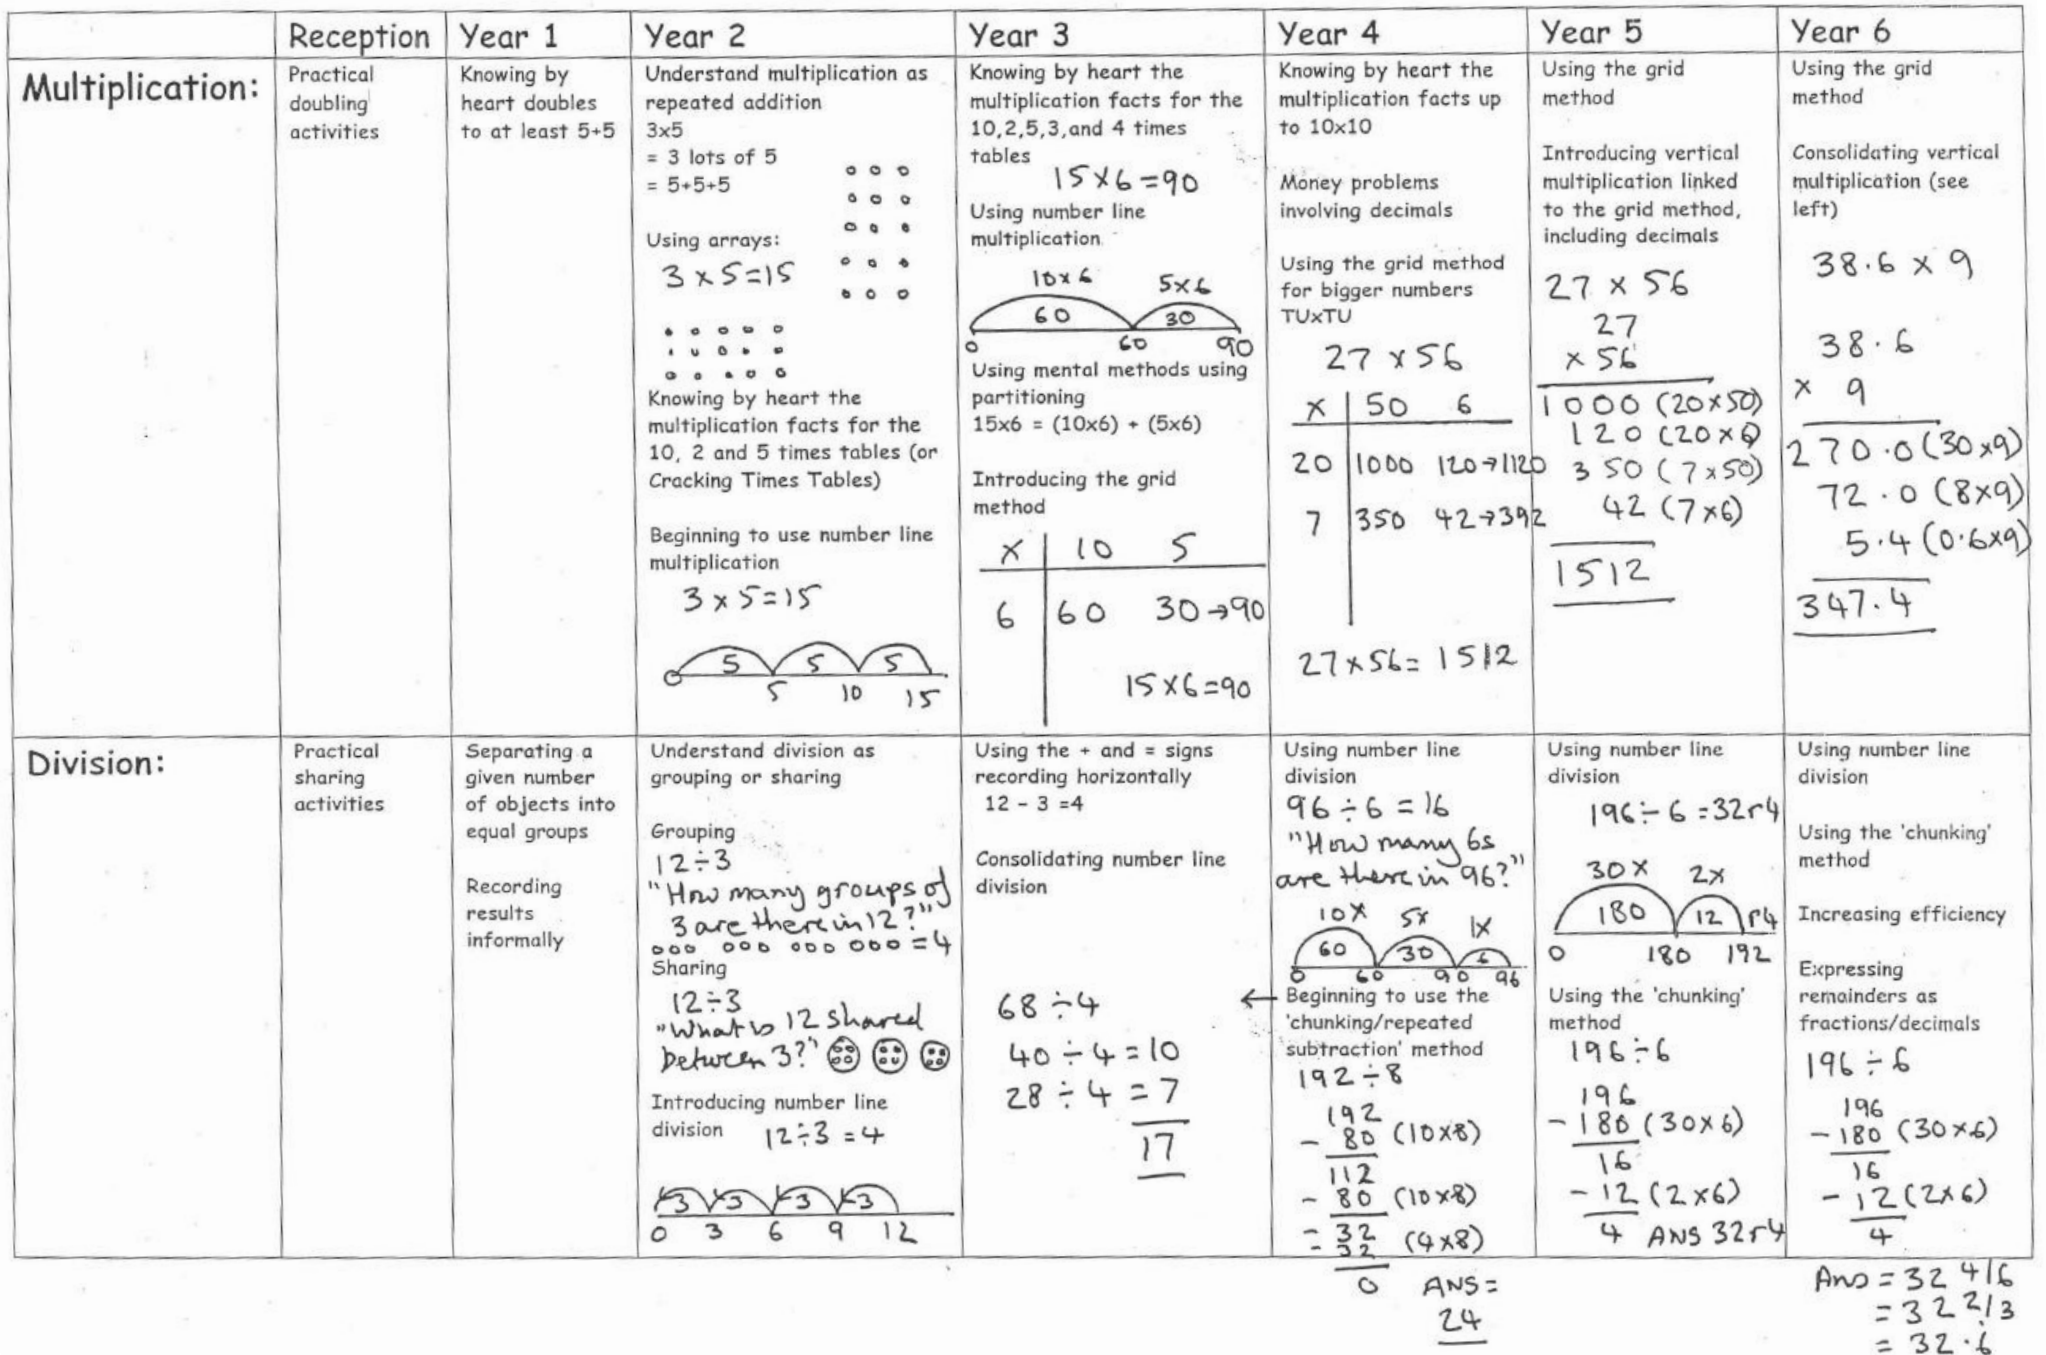 Reception
Year 1
Year 2
Year 3
Year 4
Year 5
Year 6
Multiplication:
Practical
doubling
activities
Knowing by
heart doubles
to at least 5+5
Understand multiplication as
repeated addition
3x5
= 3 lots of 5
= 5+5+5
Using arrays:
3 x 5=15
Knowing by heart the
multiplication facts for the
10, 2 and 5 times tables (or
Cracking Times Tables)
Beginning to use number line
multiplication
3 x 5=15
5 5 5
5 10 15
Knowing by heart the
multiplication facts for the
10,2,5,3,and 4 times
tables
15x6=90
Using number line
multiplication
10x6 5x6
60 30
0 60 90
Using mental methods using
partitioning
15x6 = (10x6) + (5x6)
Introducing the grid
method
x 10 5
6 60 30→90
15x6=90
Knowing by heart the
multiplication facts up
to 10x10
Money problems
involving decimals
Using the grid method
for bigger numbers
TUxTU
27 x 56
x 50 6
20 1000 120→1120
7 350 42→392
27x56= 1512
Using the grid
method
Introducing vertical
multiplication linked
to the grid method,
including decimals
27 x 56
27
x 56
1000 (20x50)
120 (20x6)
350 (7x50)
42 (7x6)
1512
Using the grid
method
Consolidating vertical
multiplication (see
left)
38.6 x 9
38.6
x 9
270.0 (30x9)
72.0 (8x9)
5.4 (0.6x9)
347.4
Division:
Practical
sharing
activities
Separating a
given number
of objects into
equal groups
Recording
results
informally
Understand division as
grouping or sharing
Grouping
12÷3
"How many groups of
3 are there in 12?"
= 4
Sharing
12÷3
"What is 12 shared
between 3?"
Introducing number line
division 12÷3 = 4
3 3 3 3
0 3 6 9 12
Using the + and = signs
recording horizontally
12 - 3 =4
Consolidating number line
division
68 ÷4
40 ÷ 4 = 10
28 ÷ 4 = 7
17
Using number line
division
96 ÷ 6 = 16
"How many 6s
are there in 96?"
10x 5x 1x
60 30 6
0 60 90 96
← Beginning to use the
'chunking/repeated
subtraction' method
192 ÷ 8
192
- 80 (10x8)
112
- 80 (10x8)
- 32 (4x8)
- 32
0 ANS =
24
Using number line
division
196 ÷ 6 = 32r4
30x 2x
180 12 r4
0 180 192
Using the 'chunking'
method
196 ÷ 6
196
- 180 (30x6)
16
- 12 (2x6)
4 ANS 32r4
Using number line
division
Using the 'chunking'
method
Increasing efficiency
Expressing
remainders as
fractions/decimals
196 ÷ 6
196
- 180 (30x6)
16
- 12 (2x6)
4
Ans = 32 4/6
= 32 2/3
= 32.6